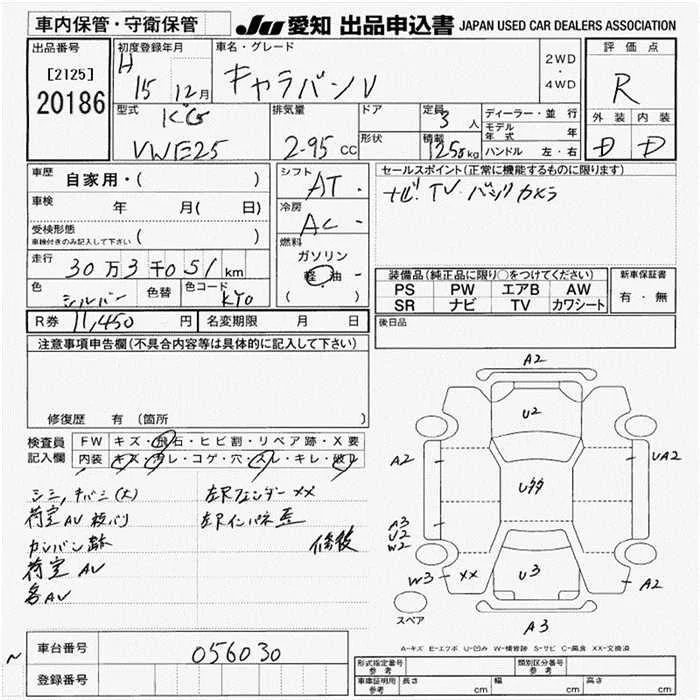 車内保管・守衛保管
JU 愛知 出品申込書 JAPAN USED CAR DEALERS ASSOCIATION
出品番号
[2125]
20186
初度登録年月
H 15 12月
車名・グレード
キャラバンV
2WD
・
4WD
評価点
R
外装 内装
D D
型式
KG
VWE25
排気量
2-95 CC
ドア
形状
定員
3人
積載
1250kg
ディーラー・並行
モデル年式 年
ハンドル 左・右
車歴 自家用・( )
車検 年 月( 日)
受検形態
車検付きのみ記入して下さい ( )
走行 30万3千051km
色 シルバー 色替 色コード KY0
シフト
AT -
冷房
AC -
燃料
ガソリン
軽油 -
( )
セールスポイント(正常に機能するものに限ります)
ナビ. TV. バックカメラ
装備品(純正品に限り○をつけてください)
PS PW エアB AW
SR ナビ TV カワシート
新車保証書
有・無
R券 11,450円 名変期限 月 日
後日品
注意事項申告欄(不具合内容等は具体的に記入して下さい)
修復歴 有(箇所 )
検査員記入欄
FW キズ・飛石・ヒビ割・リペア跡・X要
内装 キズ・汚レ・コゲ・穴・スレ・キレ・破レ
シミ,チバミ(大)
荷室AU板バリ
カンバン跡
荷室 AU
各AU
左Rフェンダー XX
左Rインパネ歪
修後
A2
U2
A2
UA2
U99
A3
U2
W2
W3 - XX
U3
A2
スペア
A3
A-キズ E-エクボ U-凹み W-補修跡 S-サビ C-腐食 XX-交換済
車台番号 056030
登録番号
形式指定番号
参考
類別区分番号
参考
車庫証明用
参考
長さ cm 幅 cm 高さ cm